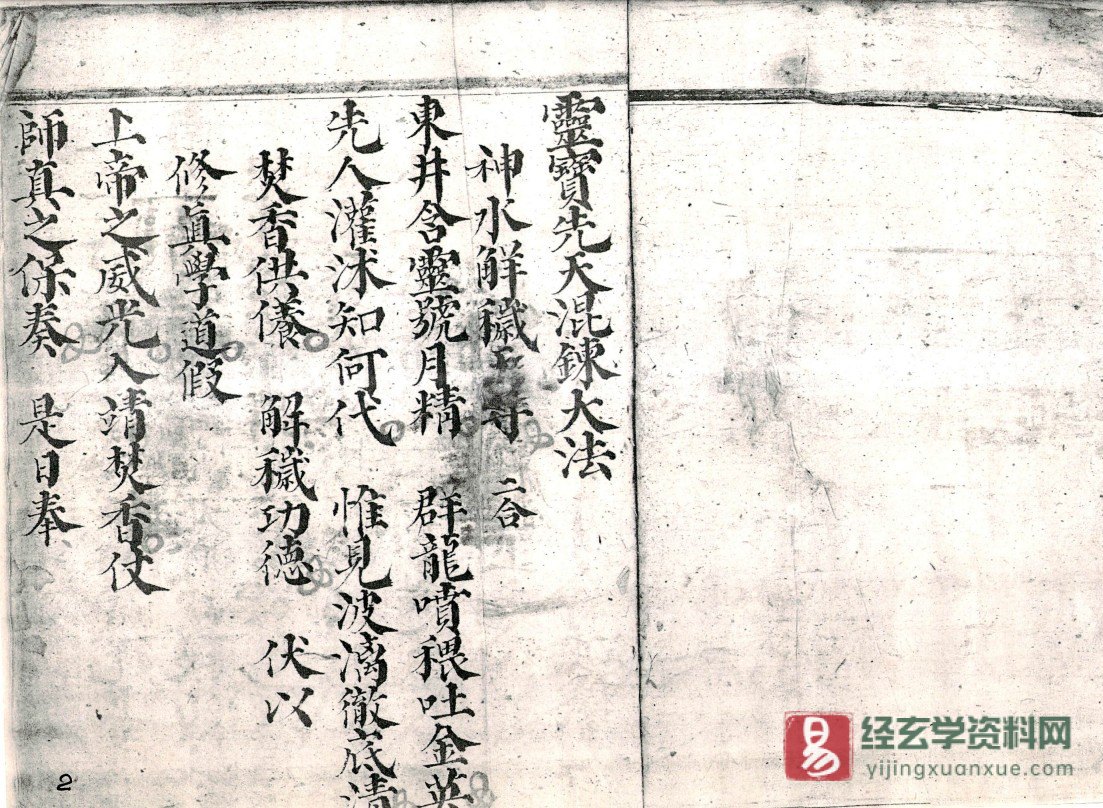 靈寶先天混鍊大法
神水解穢 尊 二合
東井含靈號月精 群龍噴穢吐金英
先人灌沐知何代 惟見波漓徹底清
焚香供儀 解穢功德 伏以
修真學道假
上帝之威光入靖焚香仗
師真之保奏 是日奉
2
易
经玄学资料网
yijingxuanxue.com